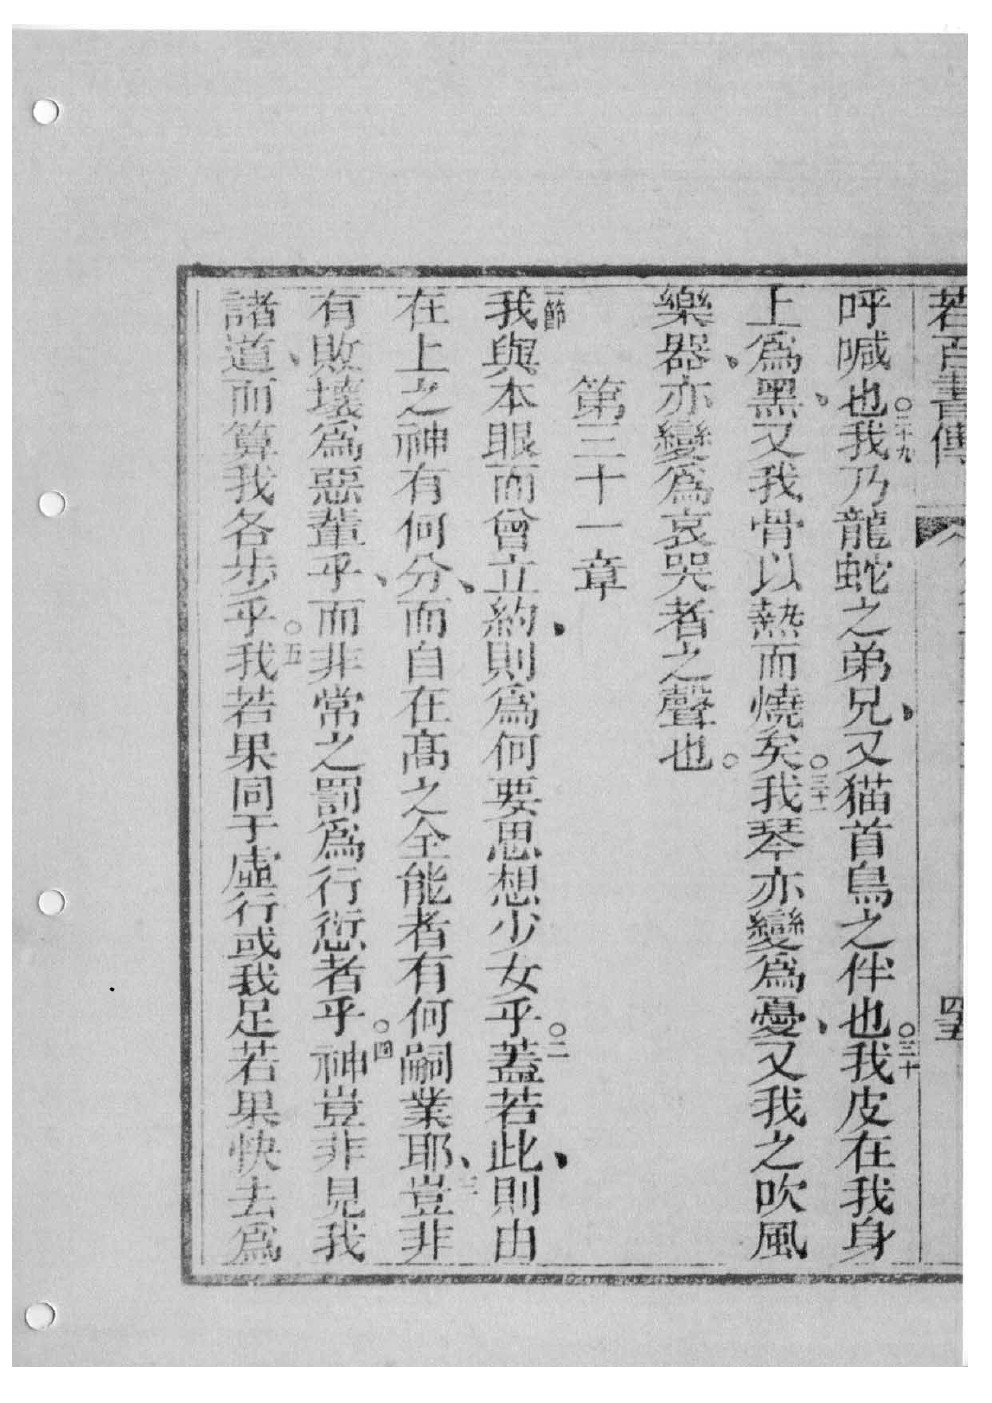 若百書傳 四五
呼喊也○二十九我乃龍蛇之弟兄、又猫首鳥之伴也○三十我皮在我身
上爲黑、又我骨以熱而燒矣○三十一我琴亦變爲憂、又我之吹風
樂器、亦變爲哀哭者之聲也○
第三十一章
一節我與本眼而曾立約、則爲何要思想少女乎○二蓋若此、則由
在上之神有何分、而自在高之全能者有何嗣業耶、三豈非
有敗壞爲惡輩乎、而非常之罰爲行愆者乎○四神豈非見我
諸道、而算我各步乎○五我若果同于虛行或我足若果快去爲